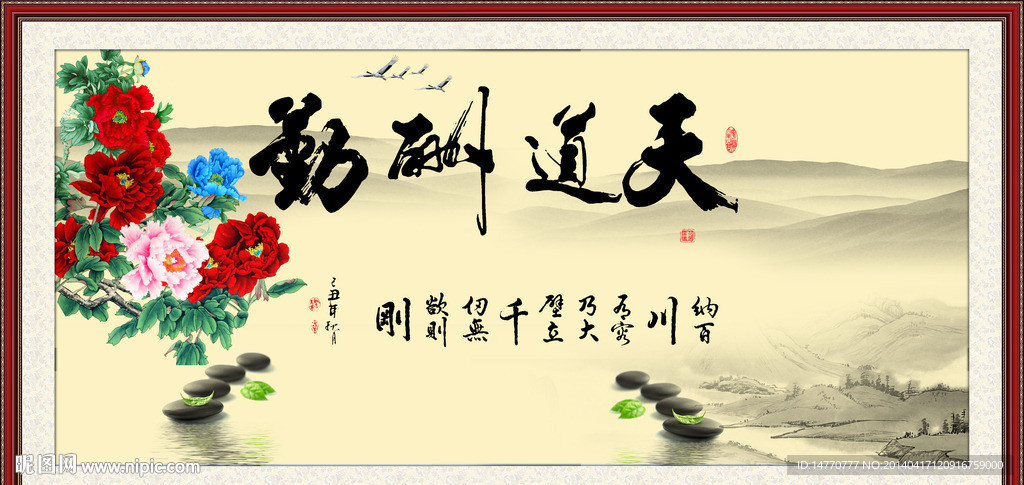 天道酬勤
納百川有容乃大壁立千仞無欲則剛
己丑年秋月
昵图网 www.nipic.com
ID:14770777 NO:20140417120916759000